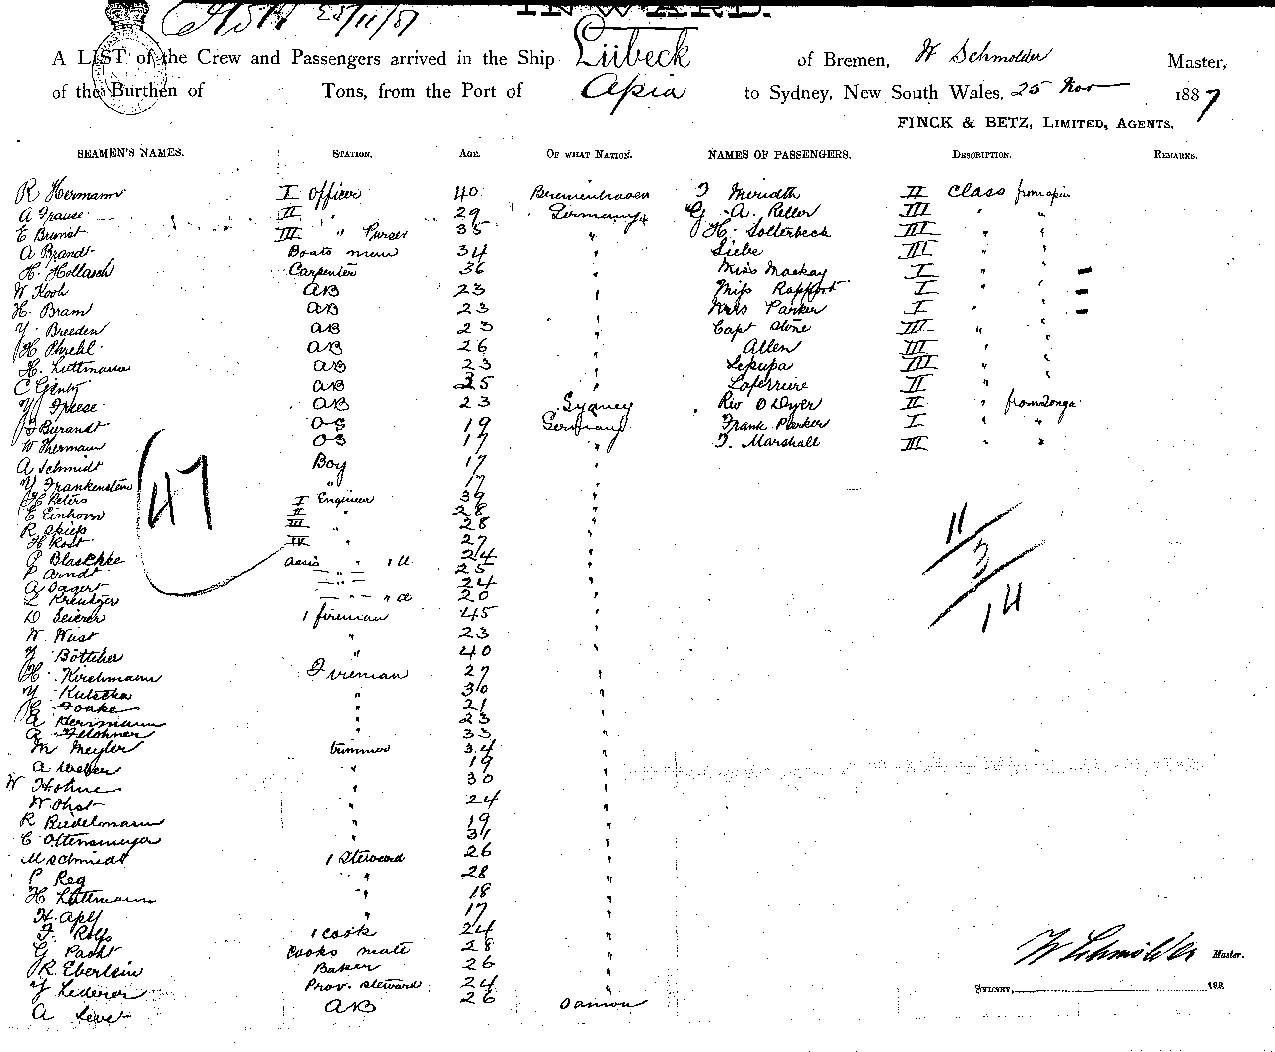 INWARD.
28/11/87
A LIST of the Crew and Passengers arrived in the Ship Lübeck of Bremen, W Schmölder Master,
of the Burthen of Tons, from the Port of Apia to Sydney, New South Wales, 25 Nov 1887
FINCK & BETZ, LIMITED, AGENTS.
SEAMEN'S NAMES. STATION. AGE. OF WHAT NATION. NAMES OF PASSENGERS. DESCRIPTION. REMARKS.
R Hermann I Officer 40 Bremerhaven Meridth II Class from apia
A Frause II " 29 Germany G. A. Keller III " "
E Brunst III " Purser 35 " H. Sollerbeck III " "
A Brandt Boats man 34 " Siebe III " "
H. Hollasch Carpenter 36 " Miss Mackay I " "
W Koch AB 23 " Miss Rapport I " "
H. Bram AB 23 " Mrs Parker I " "
Y. Breeden AB 23 " Capt Stone III " "
H AB 26 " Allen III " "
H. Luttmann AB 23 " Lepupa III " "
C Gentz AB 25 " Laferriere II " "
Y Freese AB 23 Sydney Rev O Dyer II " from Tonga
Burandt OS 19 Germany Frank Parker I " "
W Thermann OS 17 " T. Marshall III " "
A Schmidt Boy 17 "
Y Frankenstein " 17 "
H Peters I Engineer 39 "
E Einhorn II " 28 "
R Skieb III " 28 "
H Rost IV " 27 "
P Blaschke assis " " 24 "
P Arndt 25 "
A Oggert 24 "
L Kreutzer 20 "
D Seierer 1 fireman 45 "
W Wust " 23 "
Y Böttcher " 40 "
H. Kirchmann Fireman 27 "
Y Kutscha " 30 "
Foake " 21 "
A Herrmann " 23 "
A " 33 "
M Meyler trimmer 34 "
A Weber " 19 "
W Hohne " 30 "
W. Obst " 24 "
R Biedelmann " 19 "
C Ottensmeyer " 31 "
M Schmidt 1 steward 26 "
P Reg " 28 "
H Luttmann " 18 "
H. Apel " 17 "
F. Rolfs 1 cook 24 "
G Pacht Cooks mate 28 "
R. Eberlein Baker 26 "
Y Lederer Prov. steward 24 "
A Leve AB 26 Samoa
47
11
3
14
W Schmölder Master.
SYDNEY, 188